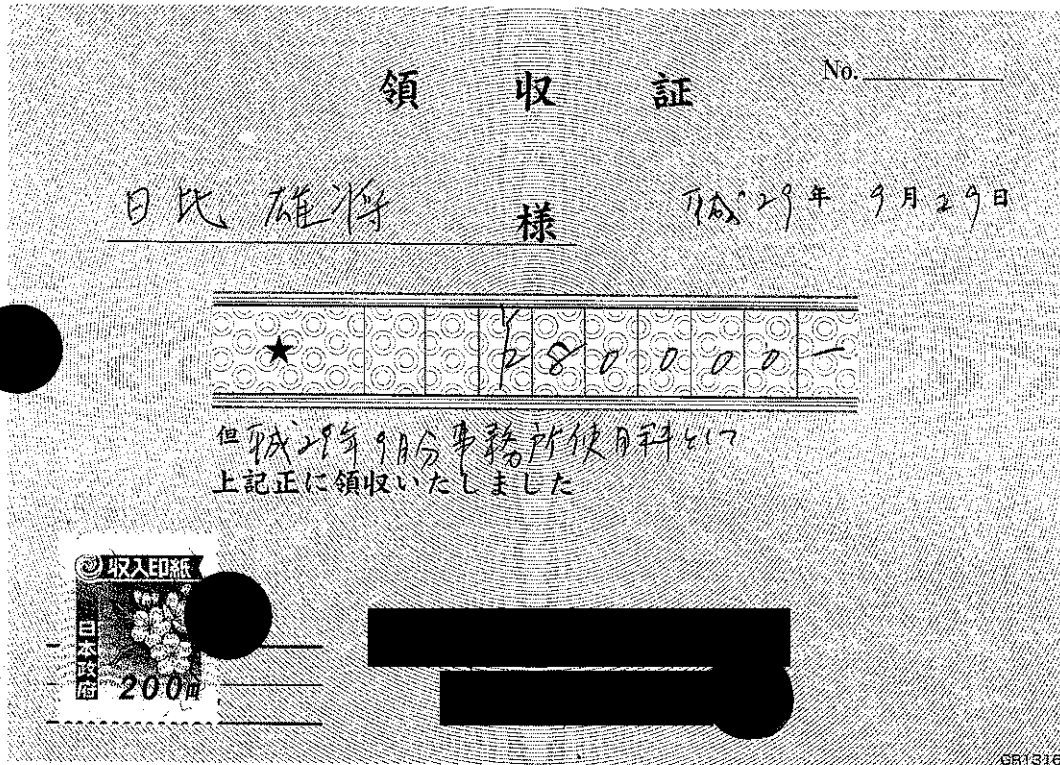 領収証
No.
日比 雄将 様
平成29年 9月29日
★ ¥280000-
但 平成29年9月分事務所使用料として
上記正に領収いたしました
収入印紙
日本政府
200円
GB1318